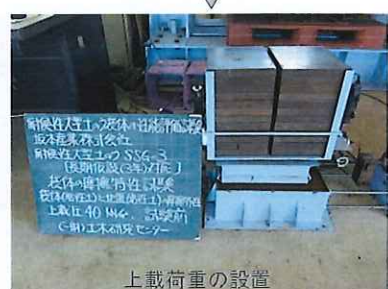 耐候性大型土のう袋体の性能評価試験
坂本産業株式会社
耐候性大型土のう SSG-3
[長期仮設(3年)対応]
袋体の摩擦特性試験
上載圧 40 kN/㎡ 試験前
(一財)土木研究センター
上載荷重の設置